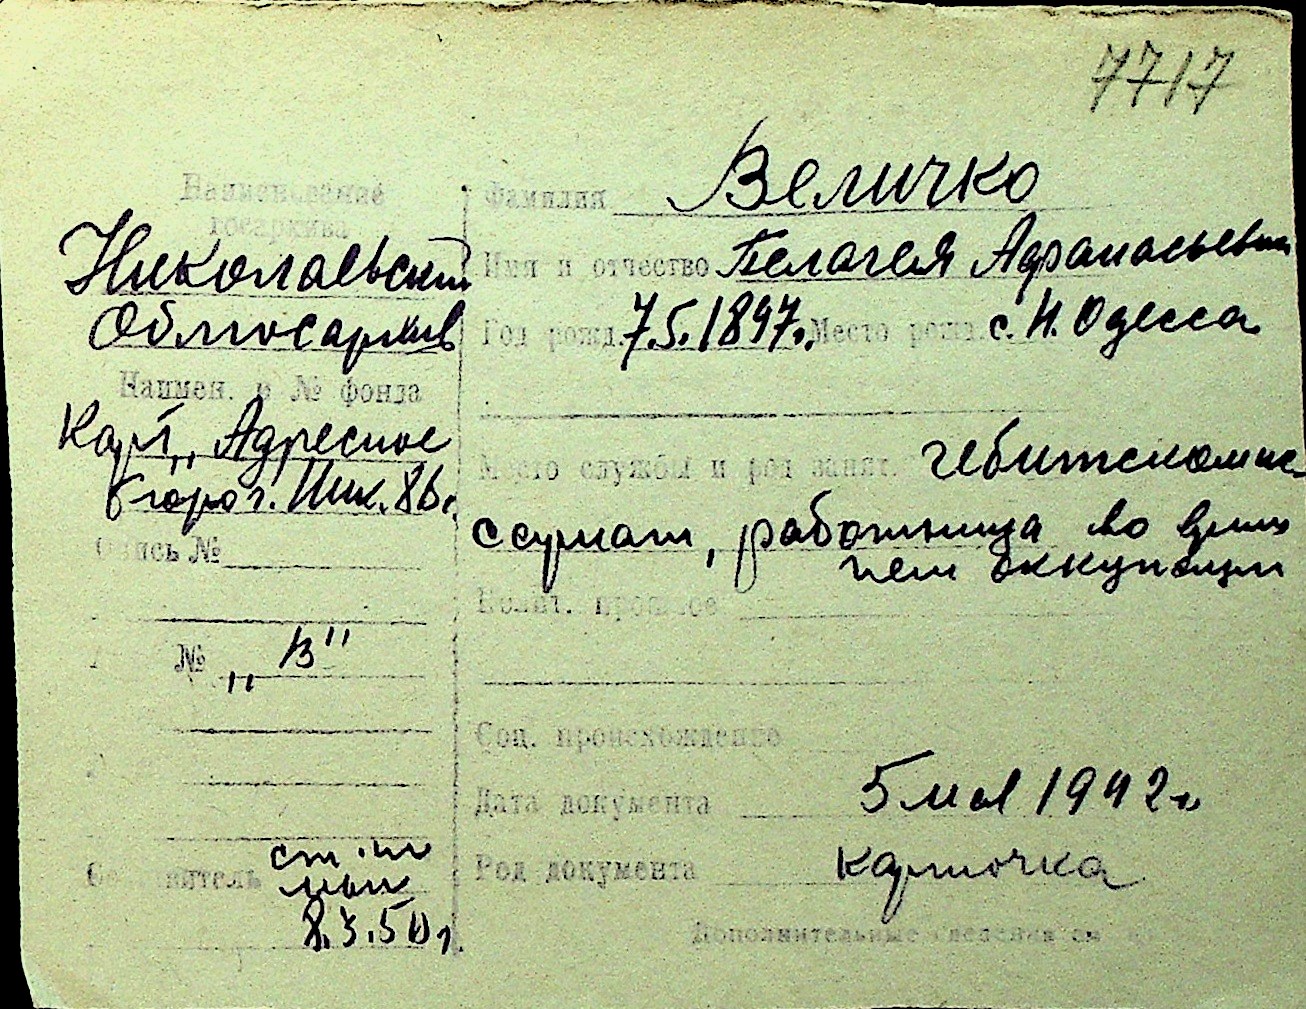 7717
Наименование
госархива
Николаевский
Облгосархив
Наимен. и № фонда
Карт. „Адресное
г. Ник. 86.
Опись №
№ „В"
8.3.50г.
Фамилия Величко
Имя и отчество Пелагея Афанасьевна
Год рожд. 7.5.1897г. Место рожд. с. Н. Одесса
Место службы и род занят. гебитскоми
ссариат, работница во время
нем оккупации
Полит. прошлое
Соц. происхождение
Дата документа 5 мая 1942г.
Род документа карточка
Дополнительные сведения см